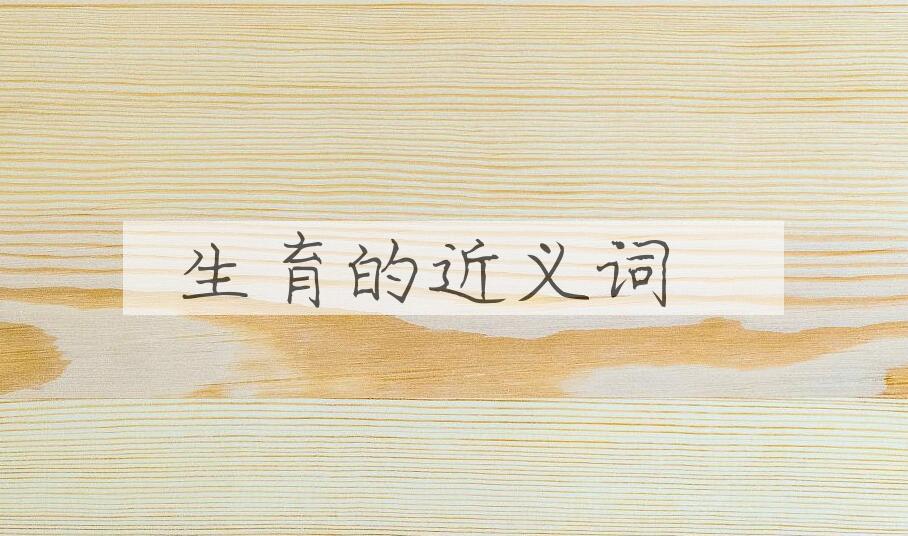 生育的近义词